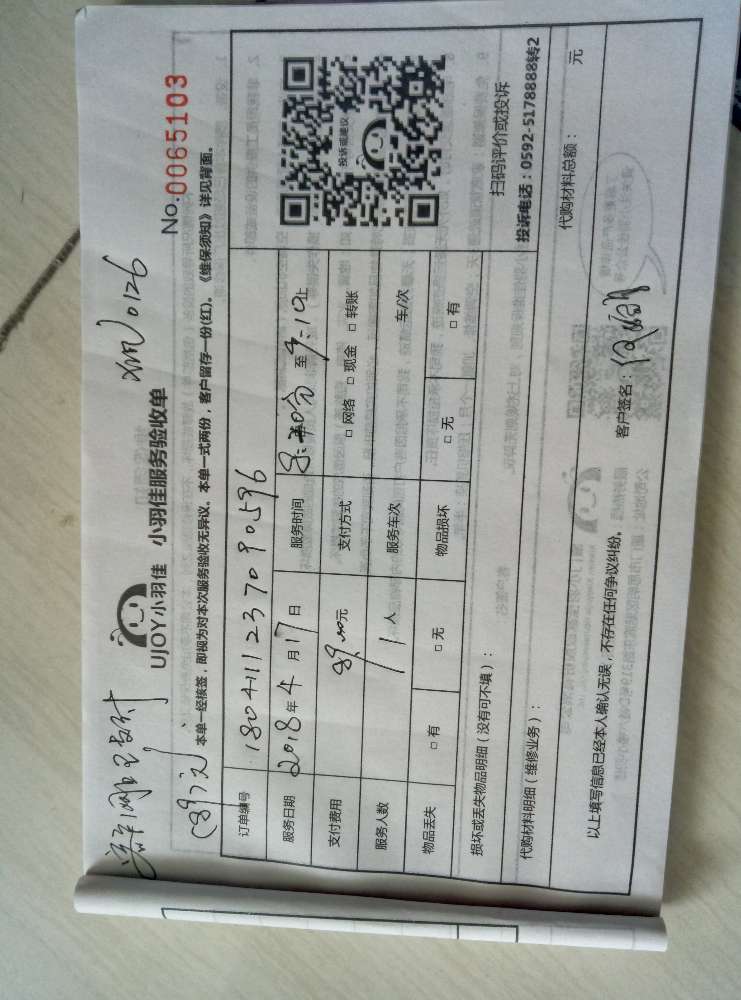 0126
No.0065103
UJOY小羽佳 小羽佳服务验收单
(89元)
本单一经核签，即视为对本次服务验收无异议。本单一式两份，客户留存一份(红)。《维保须知》详见背面。
订单编号 180411237090596
服务日期 2018年4月17日 服务时间 至 9:10止
支付费用 89.00元 支付方式 □ 网络 □ 现金 □ 转账
服务人数 1人 服务车次 车/次
物品丢失 □ 有 □ 无 物品损坏 □ 无 □ 有
投诉或建议
扫码评价或投诉
投诉电话：0592-5178888转2
损坏或丢失物品明细（没有可不填）：
代购材料明细（维修业务）： 代购材料总额： 元
以上填写信息已经本人确认无误，不存在任何争议纠纷。 客户签名：